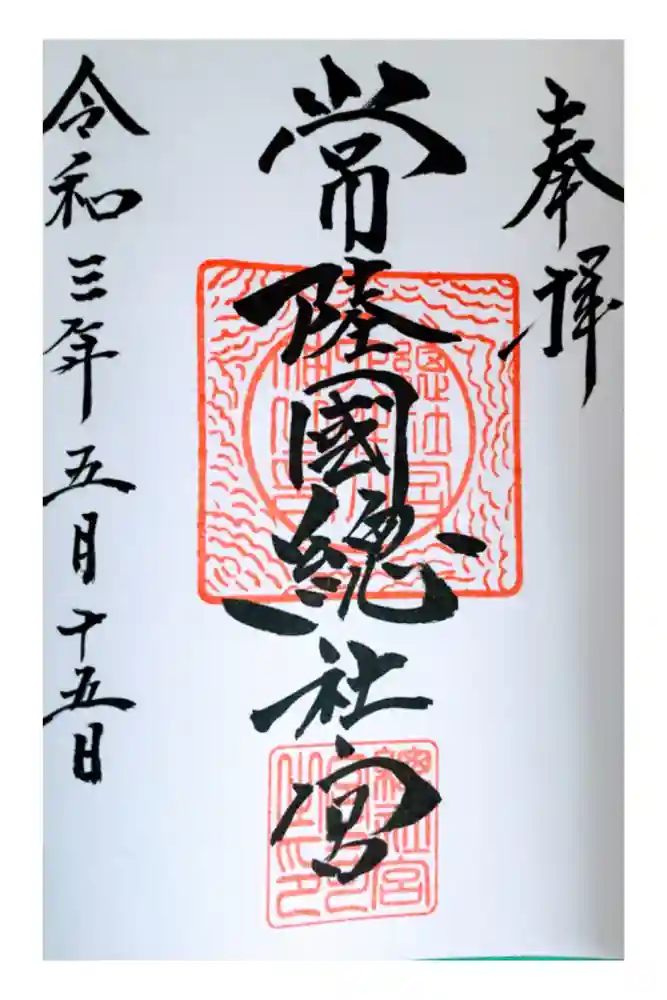 奉拝
常陸國總社宮
令和三年五月十五日